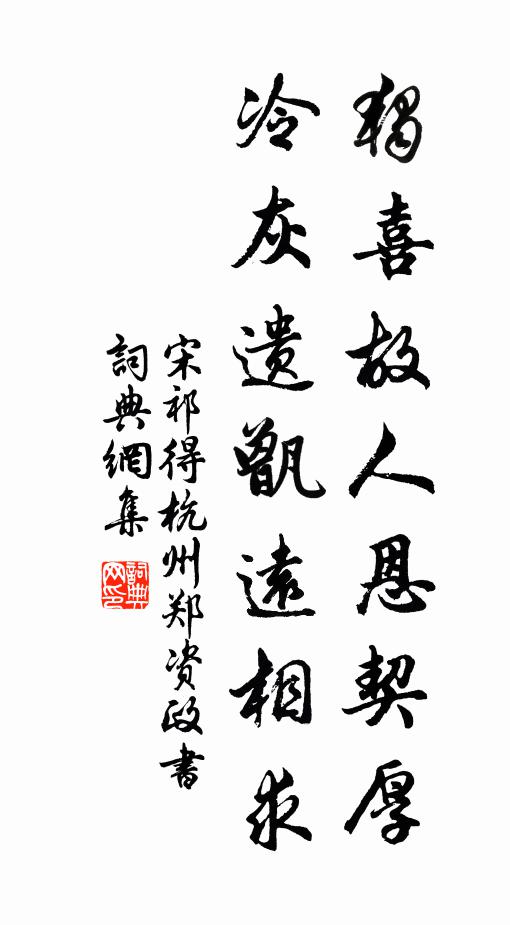 獨喜故人恩契厚
冷灰遗甑遠相求
宋祁得杭州郑资政書
詞典網集
詞典网印